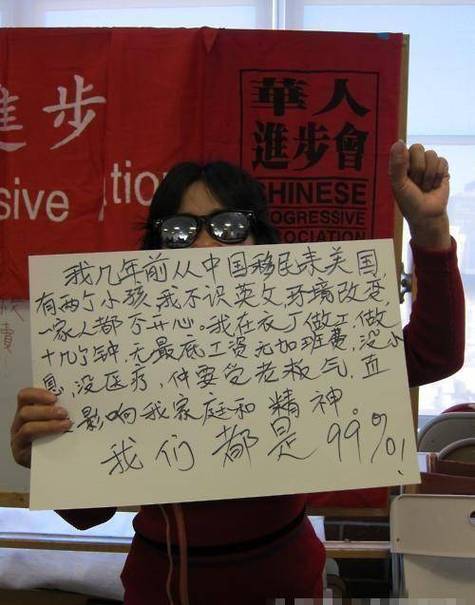 進步
sive
華人
進步會
CHINESE
PROGRESSIVE
ASSOCIATION
我几年前从中国移民来美国,
有两个小孩,我不识英文,环境改变,
一家人都不开心。我在衣厂做工,做
十几个钟,无最底工资无加班费,没小
息,没医疗,仲要受老板气,
影响我家庭和精神。
我们都是99%!